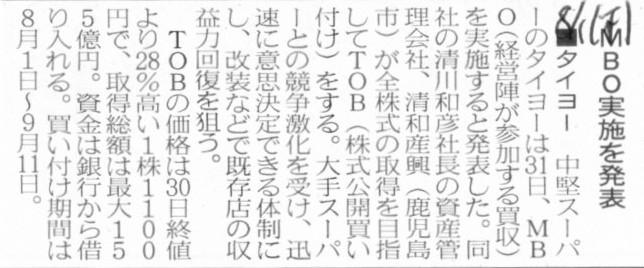 8/1
MBO実施を発表
■タイヨー　中堅スーパ
ーのタイヨーは31日、MB
O（経営陣が参加する買収）
を実施すると発表した。同
社の清川和彦社長の資産管
理会社、清和産興（鹿児島
市）が全株式の取得を目指
してTOB（株式公開買い
付け）をする。大手スーパ
ーとの競争激化を受け、迅
速に意思決定できる体制に
し、改装などで既存店の収
益力回復を狙う。
　TOBの価格は30日終値
より28％高い1株1100
円で、取得総額は最大15
5億円。資金は銀行から借
り入れる。買い付け期間は
8月1日〜9月11日。